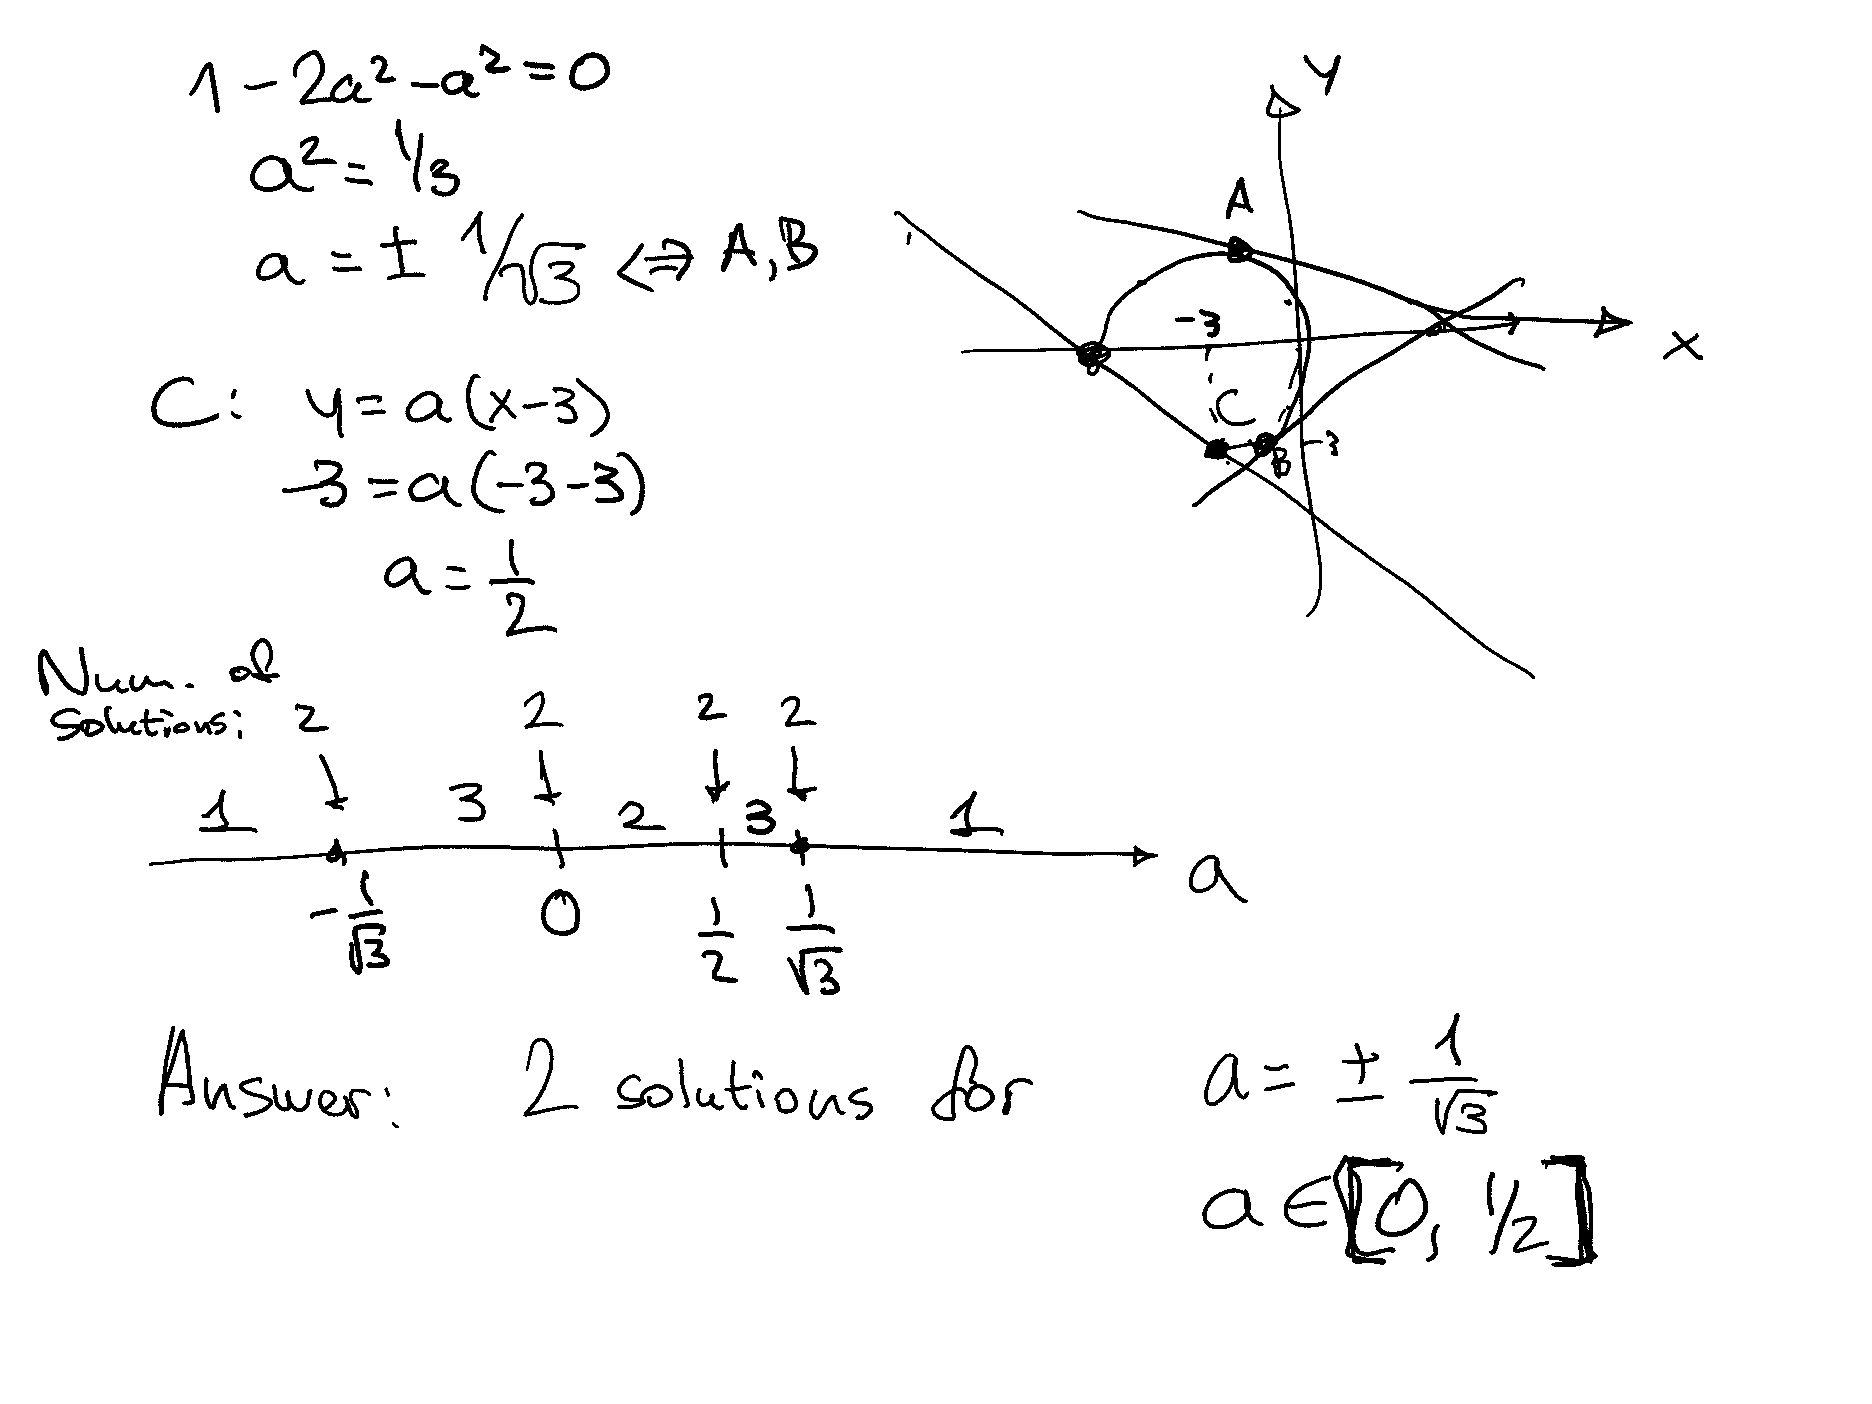 1 - 2a² - a² = 0
a² = 1/3
a = ± 1/√3 <=> A, B
C: y = a(x-3)
-3 = a(-3-3)
a = 1/2
y
A
-3
x
C
B
-3
Num. of
solutions: 2 2 2 2
1 3 2 3 1
a
-1/√3 0 1/2 1/√3
Answer: 2 solutions for a = ± 1/√3
a ∈ [0, 1/2]